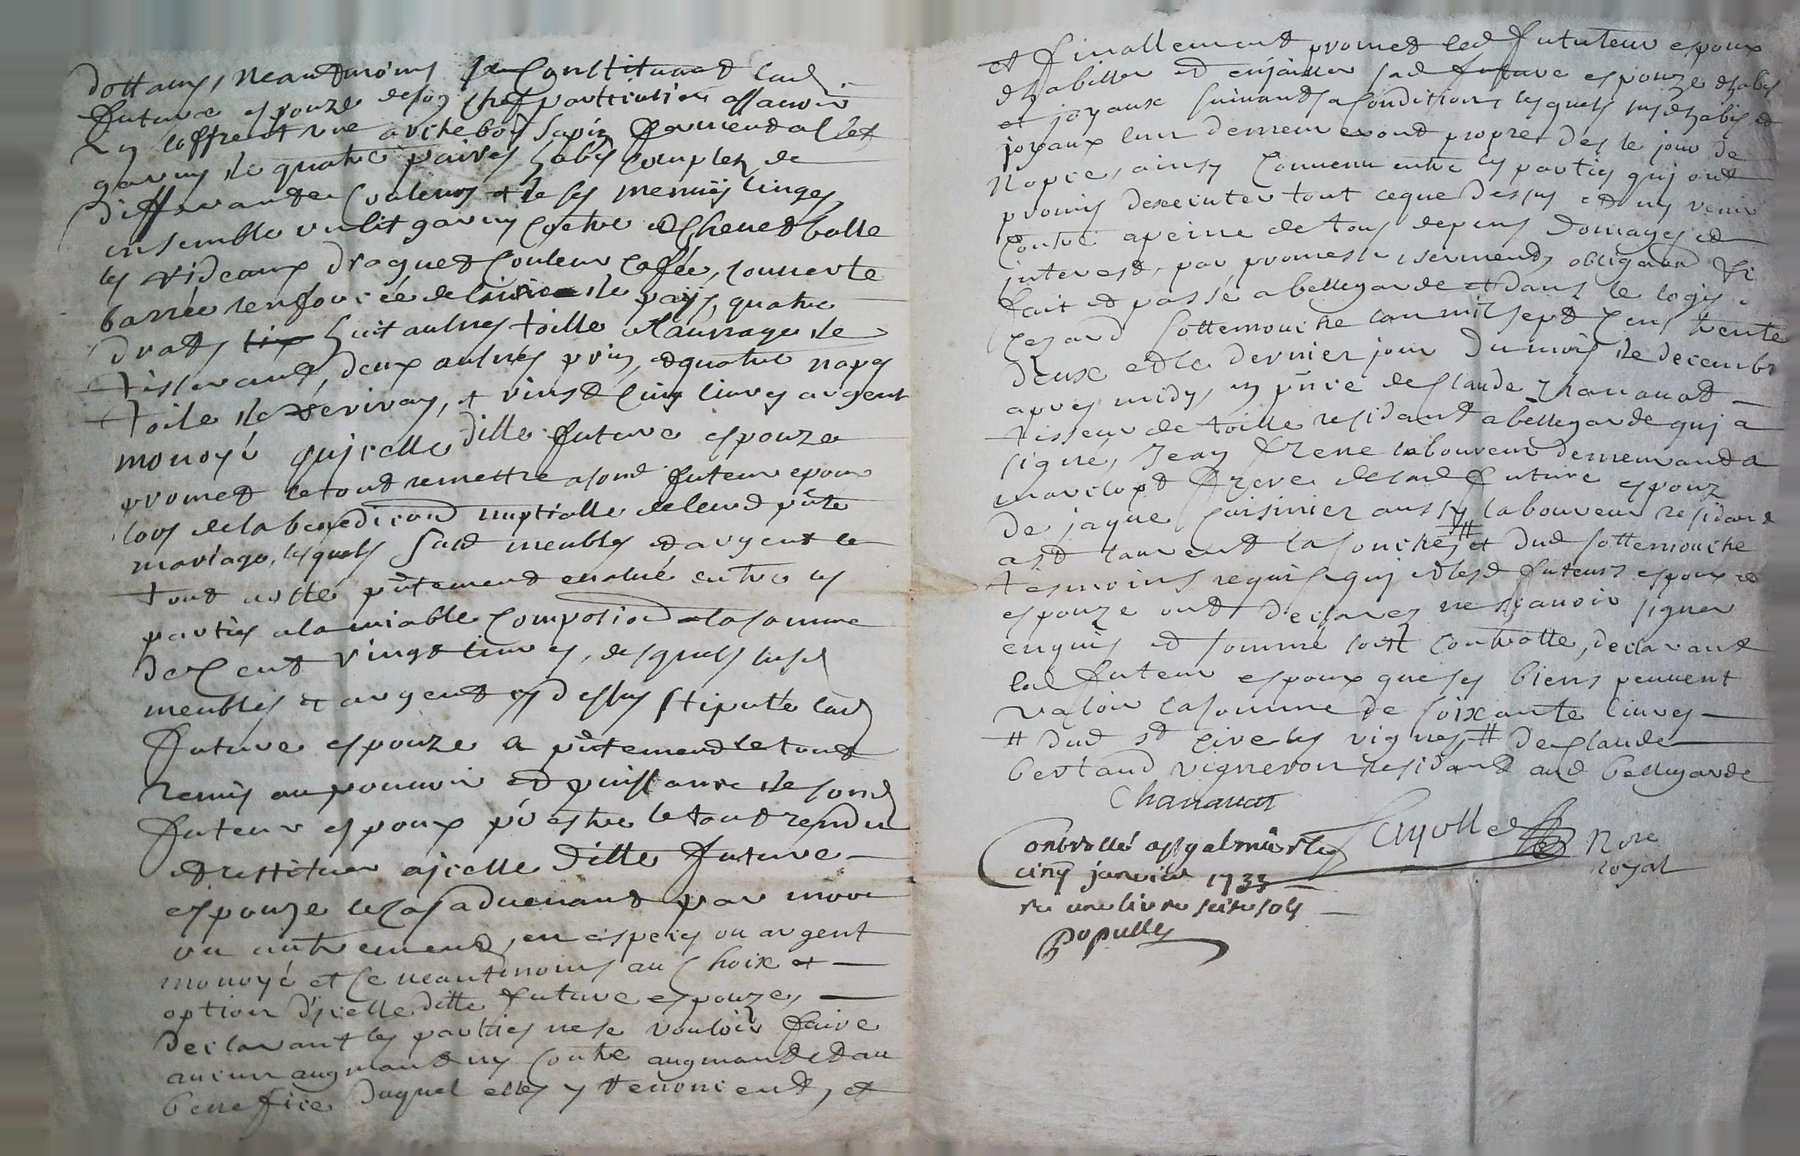 dottaux, neantmoins se Constituant lad
future espouze de son chef particulier assavoir
un coffre et une arche bois sapin fermend a clef
garnis de quatre paires habis complet de
differande couleurs et de ses menuës linges,
ensemble un lit garny coetre et chevet balle
les rideaux droguet couleur caffée, couverte
barrée renforcée de laine de païs, quatre
drats six huit aulnes toille d'aunage de
tisserand, deux aulnes prin, et quatre napes
toile de , et vingt cinq livres argent
monoyé qu'icelle ditte future espouze
promet le tout remettre a sond futeur epoux
lors de la benediction nuptialle de leurd pñte
mariage, lesquels susd meubles et argent le
tout a esté pñtement evalué entre les
parties a lamiable composition a la somme
de cent vingt livres, desquels susd
meubles et argent cy dessus stipullé lad
future espouze a pñtement le tout
remis au pouvoir et puissance de sond
futeur espoux pr estre le tout rendu
et restitué a icelle ditte future
espouze le cas advenant par mort
ou autrement, en especes ou argent
monoyé et ce neantmoins au choix et
option d'icelle ditte future espouze,
declarant les parties ne se vouloir faire
aucun augmant ny contre augmand et au
benefice duquel elles y renoncent, et
et finallement promet led futeur espoux
dhabiller et enjoailler sad future espouze dhabis
et joyaux suivant sa condition lesquels susd habis et
joyaux luy demeureront propre des le jour de
nopce, ainsy convenu entre les parties qui ont
promis dexecuter tout ce que dessus et ny venir
contre a peine de tous depens domages et
interest, par promesse, serment, obligaon &c
fait et passé a bellegarde et dans le logis de
Sottemouche lan mil sept cens trente
deux et le dernier jour du mois de decembre
apres midy, en pñce de Claude Chanavat
tisseur de toille residant a bellegarde qui a
signé, Jean Frere laboureur demeurand a
marclopt frere de lad future espouze
de jaque Cuisinier aussy laboureur residant
a st laurent la conche, # et dud Sottemouche
tesmoins requis qui et lesd futeurs espoux et
espouze ont declarez ne sçavoir signer
enquis et sommé soit controllé, declarant
led futeur espoux que ses biens peuvent
valoir la somme de soixante livres
# dud st cire les vignes, # de Claude
bertand vigneron residant aud bellegarde
Chanavat
Nore
royal
Controllé a st galmier le
cinq janvier 1733
reçu une livre seise sols
Populle